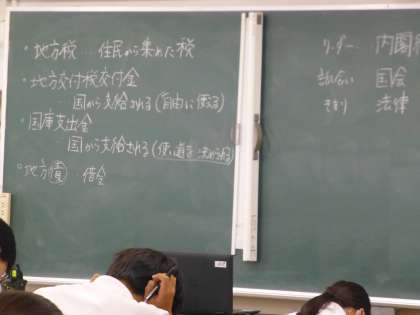 ・地方税…住民から集めた税
・地方交付税交付金
…国から支給される(自由に使える)
・国庫支出金
国から支給される(使い道を決められる)
・地方債…借金
リーダー… 内閣
話し合い 国会
きまり 法律